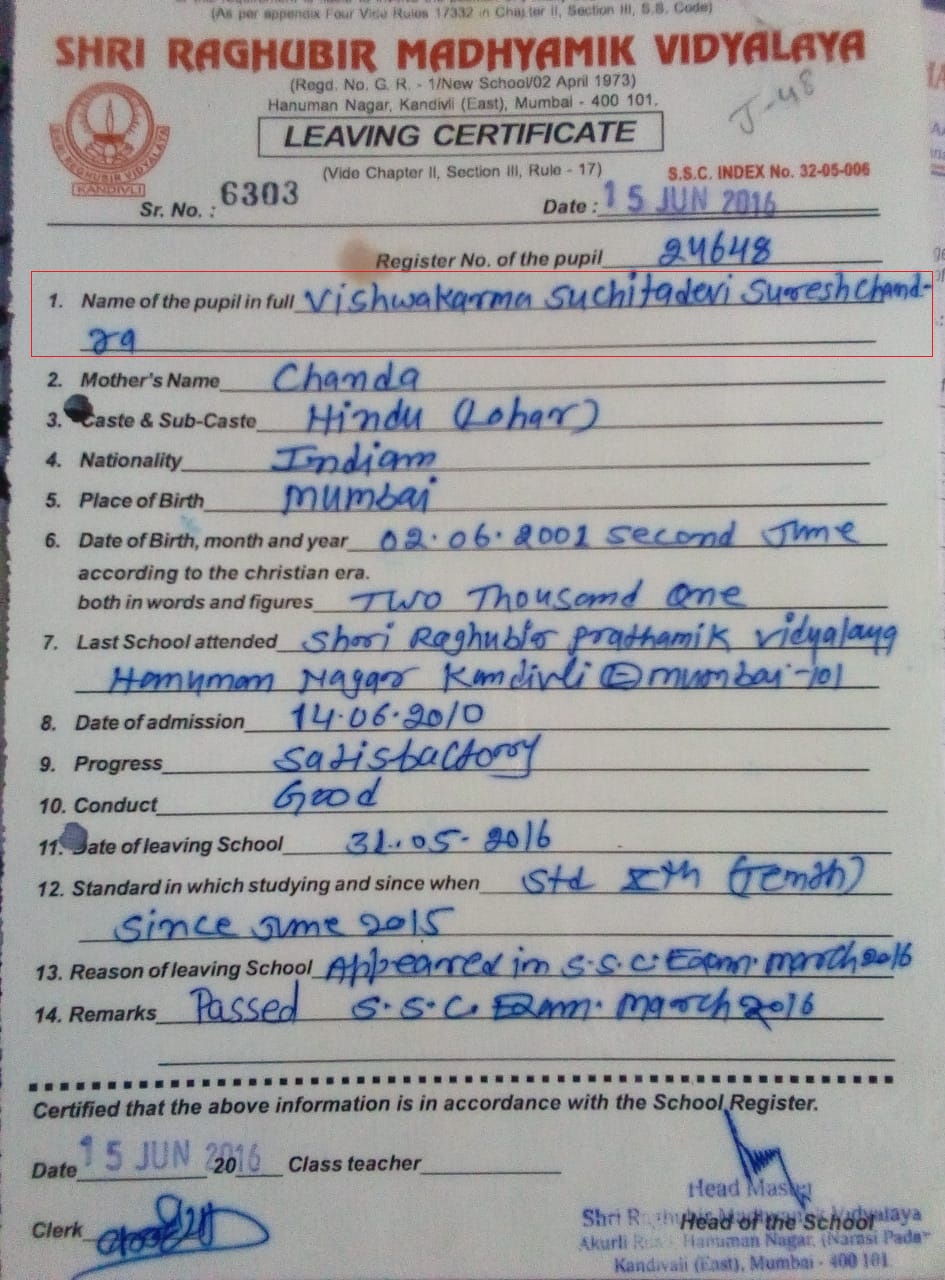 (As per appendix Four Vide Rules 17332 in Chapter II, Section III, S.S. Code)
SHRI RAGHUBIR MADHYAMIK VIDYALAYA
(Regd. No. G. R. - 1/New School/02 April 1973)
Hanuman Nagar, Kandivli (East), Mumbai - 400 101.
J-48
LEAVING CERTIFICATE
SHRI RAGHUBIR VIDYALAYA
KANDIVLI
(Vide Chapter II, Section III, Rule - 17)
S.S.C. INDEX No. 32-05-006
Sr. No. : 6303
Date : 15 JUN 2016
Register No. of the pupil 24648
1. Name of the pupil in full Vishwakarma Suchitadevi Sureshchand-
ra
2. Mother's Name Chanda
3. Caste & Sub-Caste Hindu (Lohar)
4. Nationality Indian
5. Place of Birth Mumbai
6. Date of Birth, month and year 02.06.2001 Second June
according to the christian era.
both in words and figures Two Thousand One
7. Last School attended Shri Raghubir Prathamik Vidyalaya
Hanuman Nagar Kandivli (E) Mumbai-101
8. Date of admission 14.06.2010
9. Progress Satisfactory
10. Conduct Good
11. Date of leaving School 31.05.2016
12. Standard in which studying and since when Std Xth (Tenth)
Since June 2015
13. Reason of leaving School Appeared in S.S.C. Exam. March 2016
14. Remarks Passed S.S.C. Exam. March 2016
Certified that the above information is in accordance with the School Register.
Date 15 JUN 2016 Class teacher
Head Master
Clerk
Shri Raghubir Madhyamik Vidyalaya
Head of the School
Akurli Road, Hanuman Nagar, (Narsi Pada
Kandivali (East), Mumbai - 400 101.